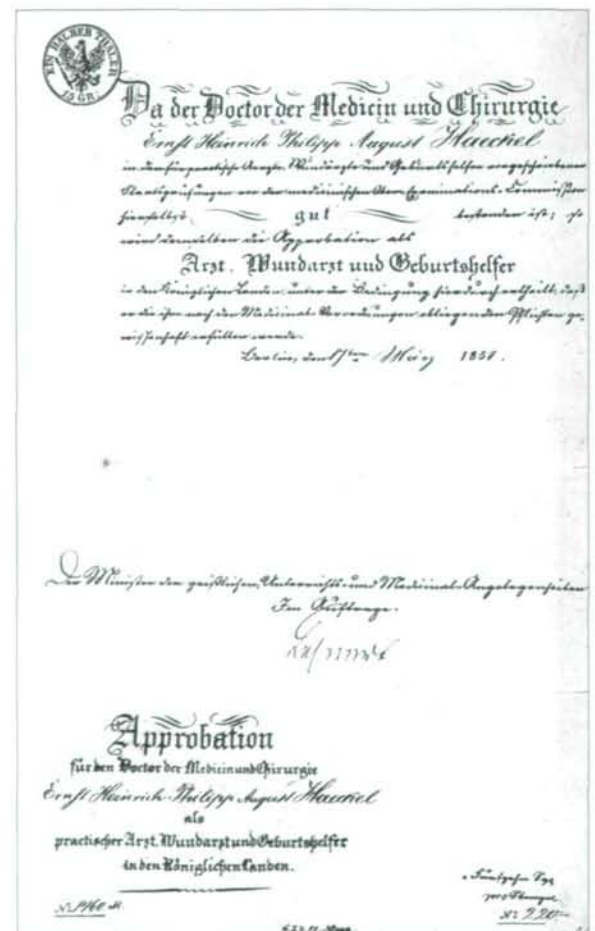 EIN HALBER THALER
15 GR.
Da der Doctor der Medicin und Chirurgie
Ernst Heinrich Philipp August Haeckel
in den für practische Aerzte, Wundärzte und Geburtshelfer vorgeschriebenen
Staatsprüfungen vor der medicinischen Ober-Examinations-Commission
hierselbst gut bestanden ist; so
wird demselben die Approbation als
Arzt, Wundarzt und Geburtshelfer
in den Königlichen Landen, unter der Bedingung hierdurch ertheilt, daß
er die ihm nach den Medicinal-Verordnungen obliegenden Pflichten ge-
wissenhaft erfüllen werde.
Berlin, den 17ten März 1858.
Der Minister der geistlichen, Unterrichts- und Medicinal-Angelegenheiten
Im Auftrage.
Approbation
für den Doctor der Medicin und Chirurgie
Ernst Heinrich Philipp August Haeckel
als
practischer Arzt, Wundarzt und Geburtshelfer
in den Königlichen Landen.
Fünfzehn Sgr.